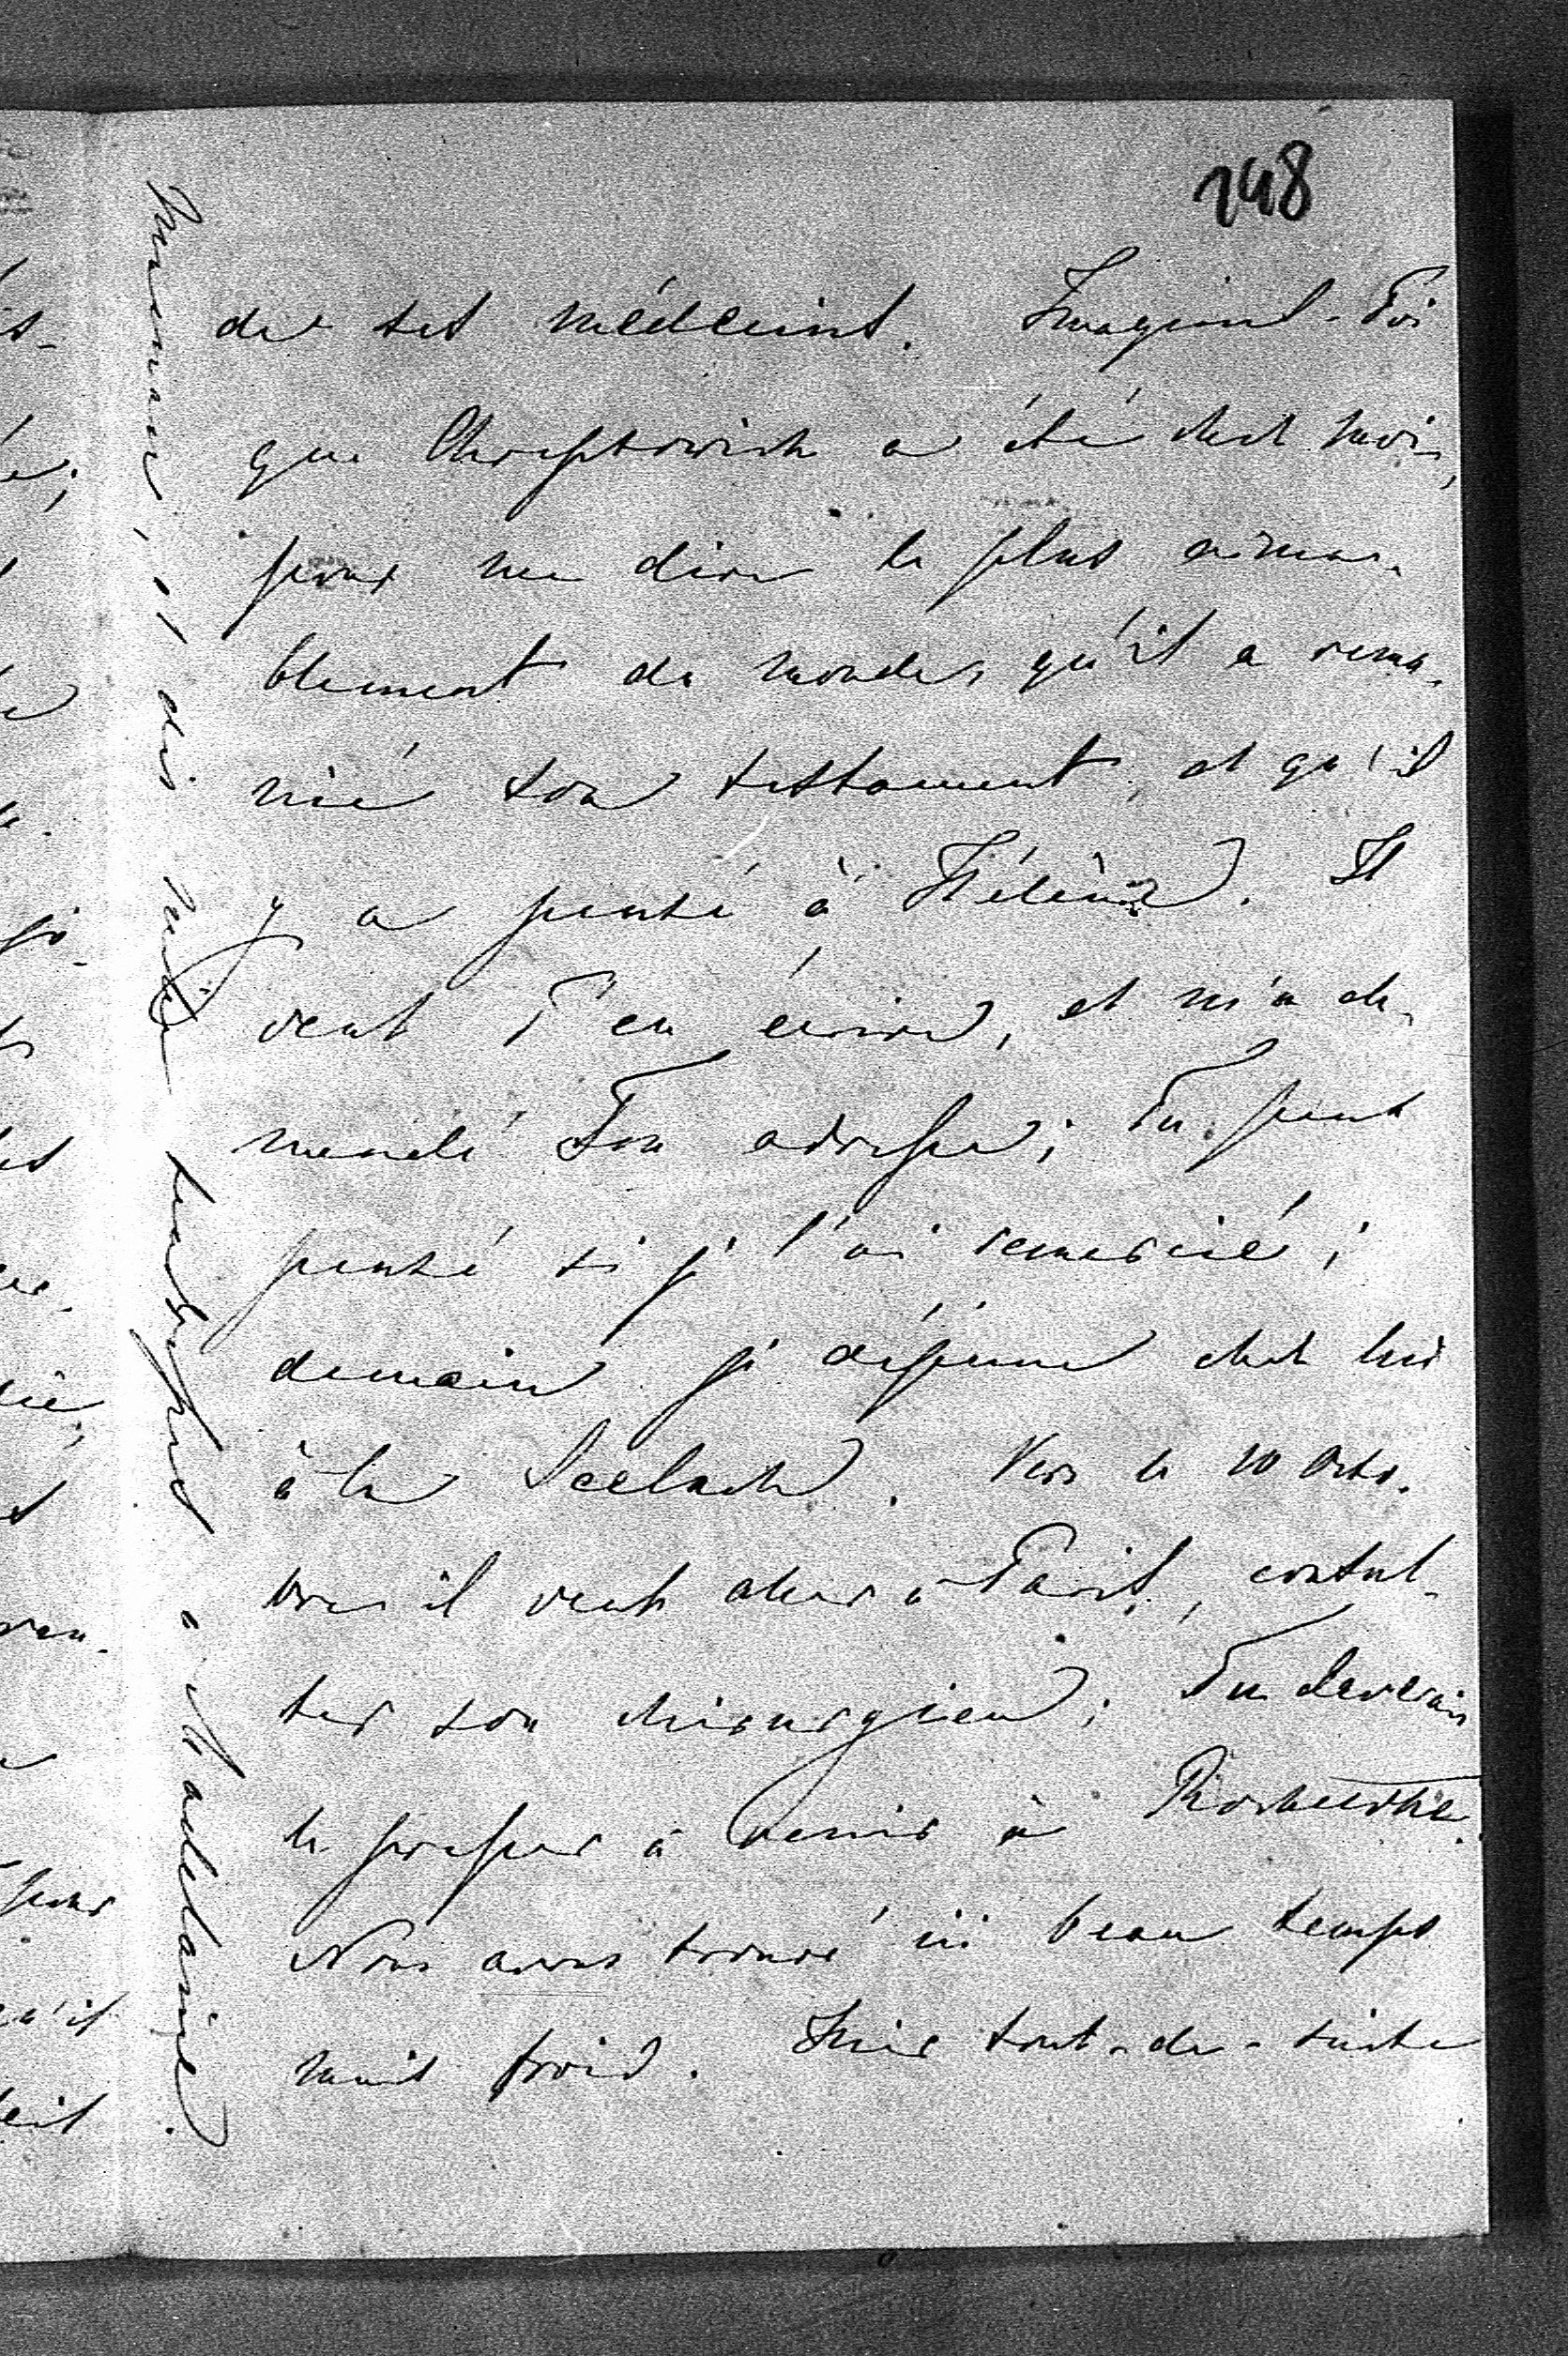 298
de ses médecins. Imagines-Toi
que Chreptowich a été chez moi,
pour me dire le plus aima-
blement du monde, qu'il a rema-
nié son testament, et qu'il
y a pensé à Hélène. Il
veut T'en écrire, et m'a de-
mandé Ton adresse; Tu peux
penser si je l'ai remercié;
demain je déjeune chez lui
à la Seeluch. Vers le 10 Octo-
bre il veut aller à Paris, consul-
ter son chirurgien; Tu devrais
le presser à venir à
Nous avons trouvé ici beau temps
mais froid. Hier tout-de-suite
Maman, et dis mille
à Madelaine.